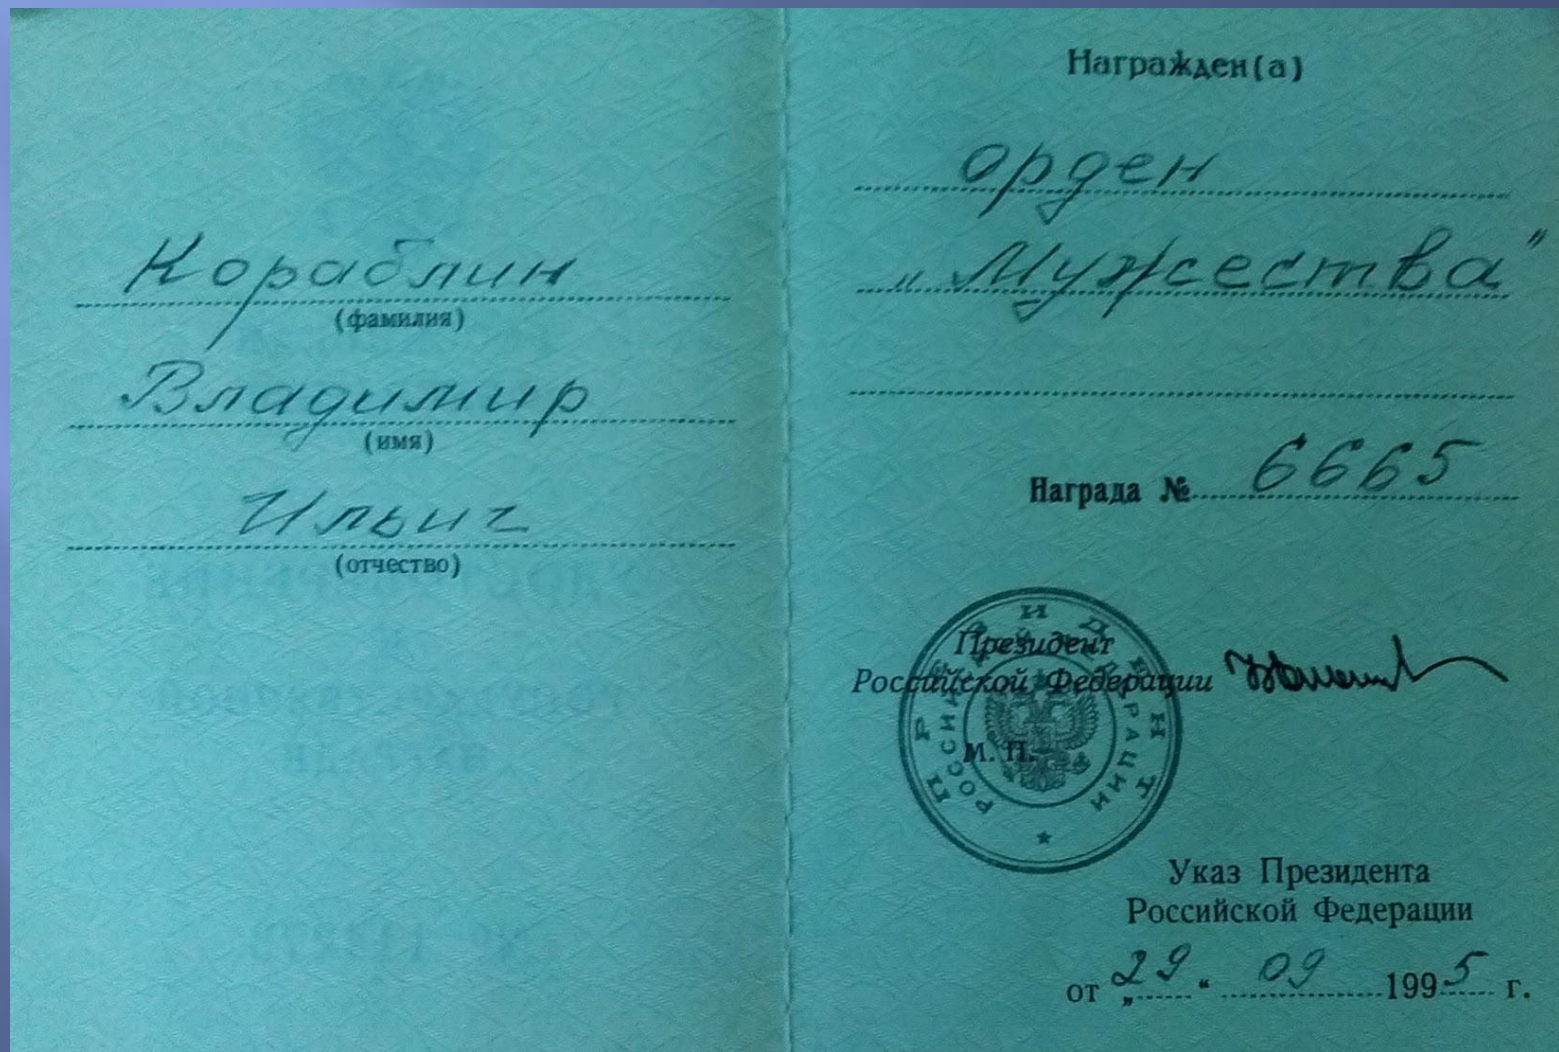 Кораблин
(фамилия)
Владимир
(имя)
Ильич
(отчество)
Награжден(а)
орден
„Мужества"
Награда № 6665
Президент
Российской Федерации
М. П.
ПРЕЗИДЕНТ
РОССИЙСКОЙ ФЕДЕРАЦИИ
Указ Президента
Российской Федерации
от „29“ 09 1995 г.